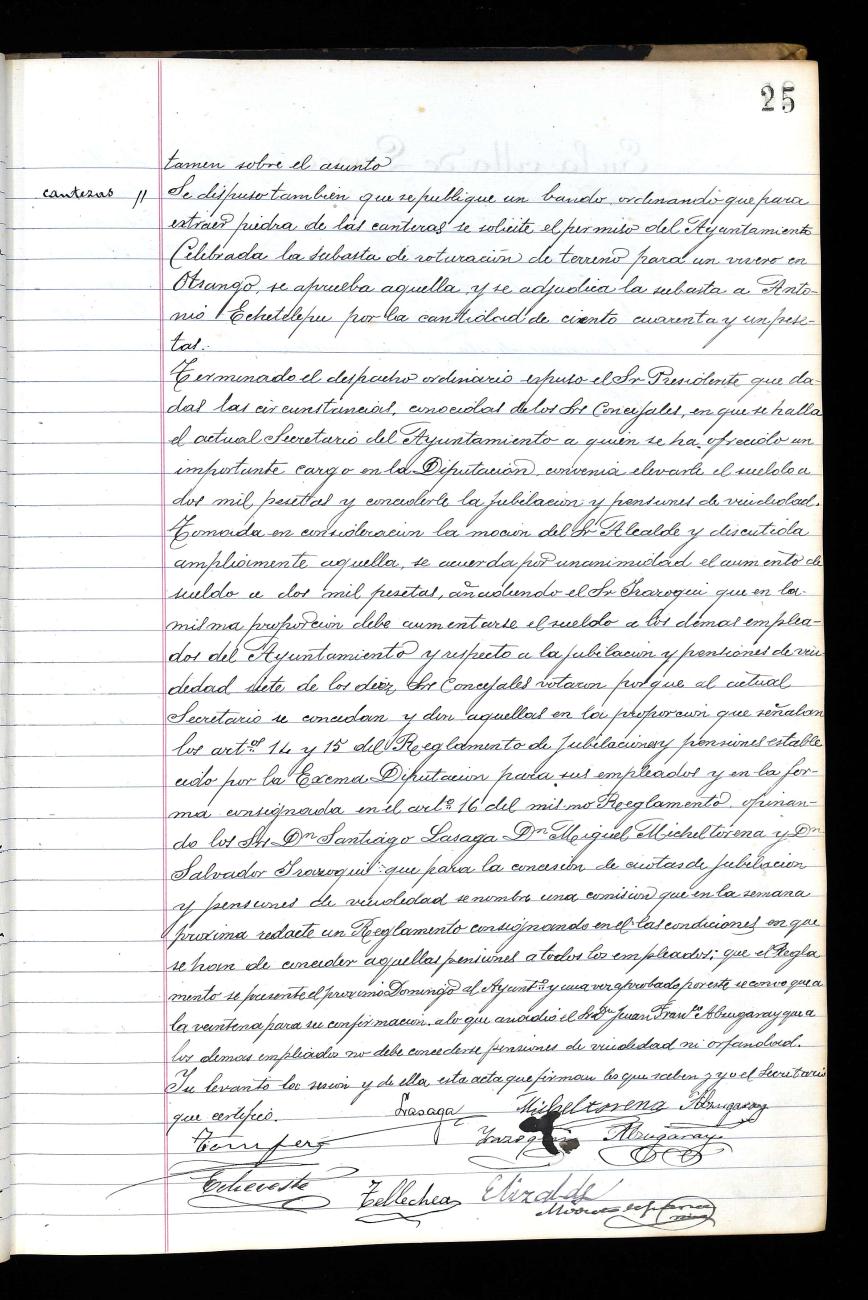 25
tamen sobre el asunto
canteras // Se dispuso tambien que se publique un bando ordenando que para
extraer piedra de las canteras se solicite el permiso del Ayuntamiento
Celebrada la subasta de roturación de terreno para un vivero en
Otsango, se aprueba aquella, y se adjudica la subasta a Anto-
nio Echetelepu por la cantidad de ciento cuarenta y un pese-
tas.
Terminado el despacho ordinario espuso el Sr Presidente que da-
das las circunstancias, conocidas de los Sres Concejales, en que se halla
el actual Secretario del Ayuntamiento a quien se ha ofrecido un
importante cargo en la Diputación, convenia elevarle el sueldo a
dos mil pesetas y concederle la jubilacion y pensiones de viudedad.
Tomada en consideracion la mocion del Sr Alcalde y discutida
ampliamente aquella, se acuerda por unanimidad el aumento de
sueldo a dos mil pesetas, añadiendo el Sr Irazoqui que en la
misma proporcion debe aumentarse el sueldo a los demas emplea-
dos del Ayuntamiento y respecto a la jubilacion y pensiones de viu-
dedad siete de los diez Sres Concejales votaron porque al actual
Secretario se concedan y den aquellas en la proporcion que señalan
los artos 14 y 15 del Reglamento de Jubilaciones y pensiones estable
cido por la Excma Diputacion para sus empleados y en la for-
ma consignada en el arto 16 del mismo Reglamento, opinan-
do los Srs Dn Santiago Lasaga Dn Miguel Micheltorena y Dn
Salvador Irazoqui que para la concesion de cuotas de jubilacion
y pensiones de viudedad se nombre una comision que en la semana
proxima redacte un Reglamento consignando en el las condiciones en que
se han de conceder aquellas pensiones a todos los empleados; que el Regla
mento se presente el proximo Domingo al Ayuntº y una vez aprobado por este se convoque a
la veintena para su confirmacion. a lo que añadió el Sr Dn Juan Franco Abrugaray que a
los demas empleados no debe concederse pensiones de viudedad ni orfandad.
Se levantó la sesion y de ella esta acta que firman los que saben y yo el Secretario
que certifico. Lasaga Micheltorena Abrugaray
Irazoqui Abrugaray
Echeveste Tellechea Elizalde